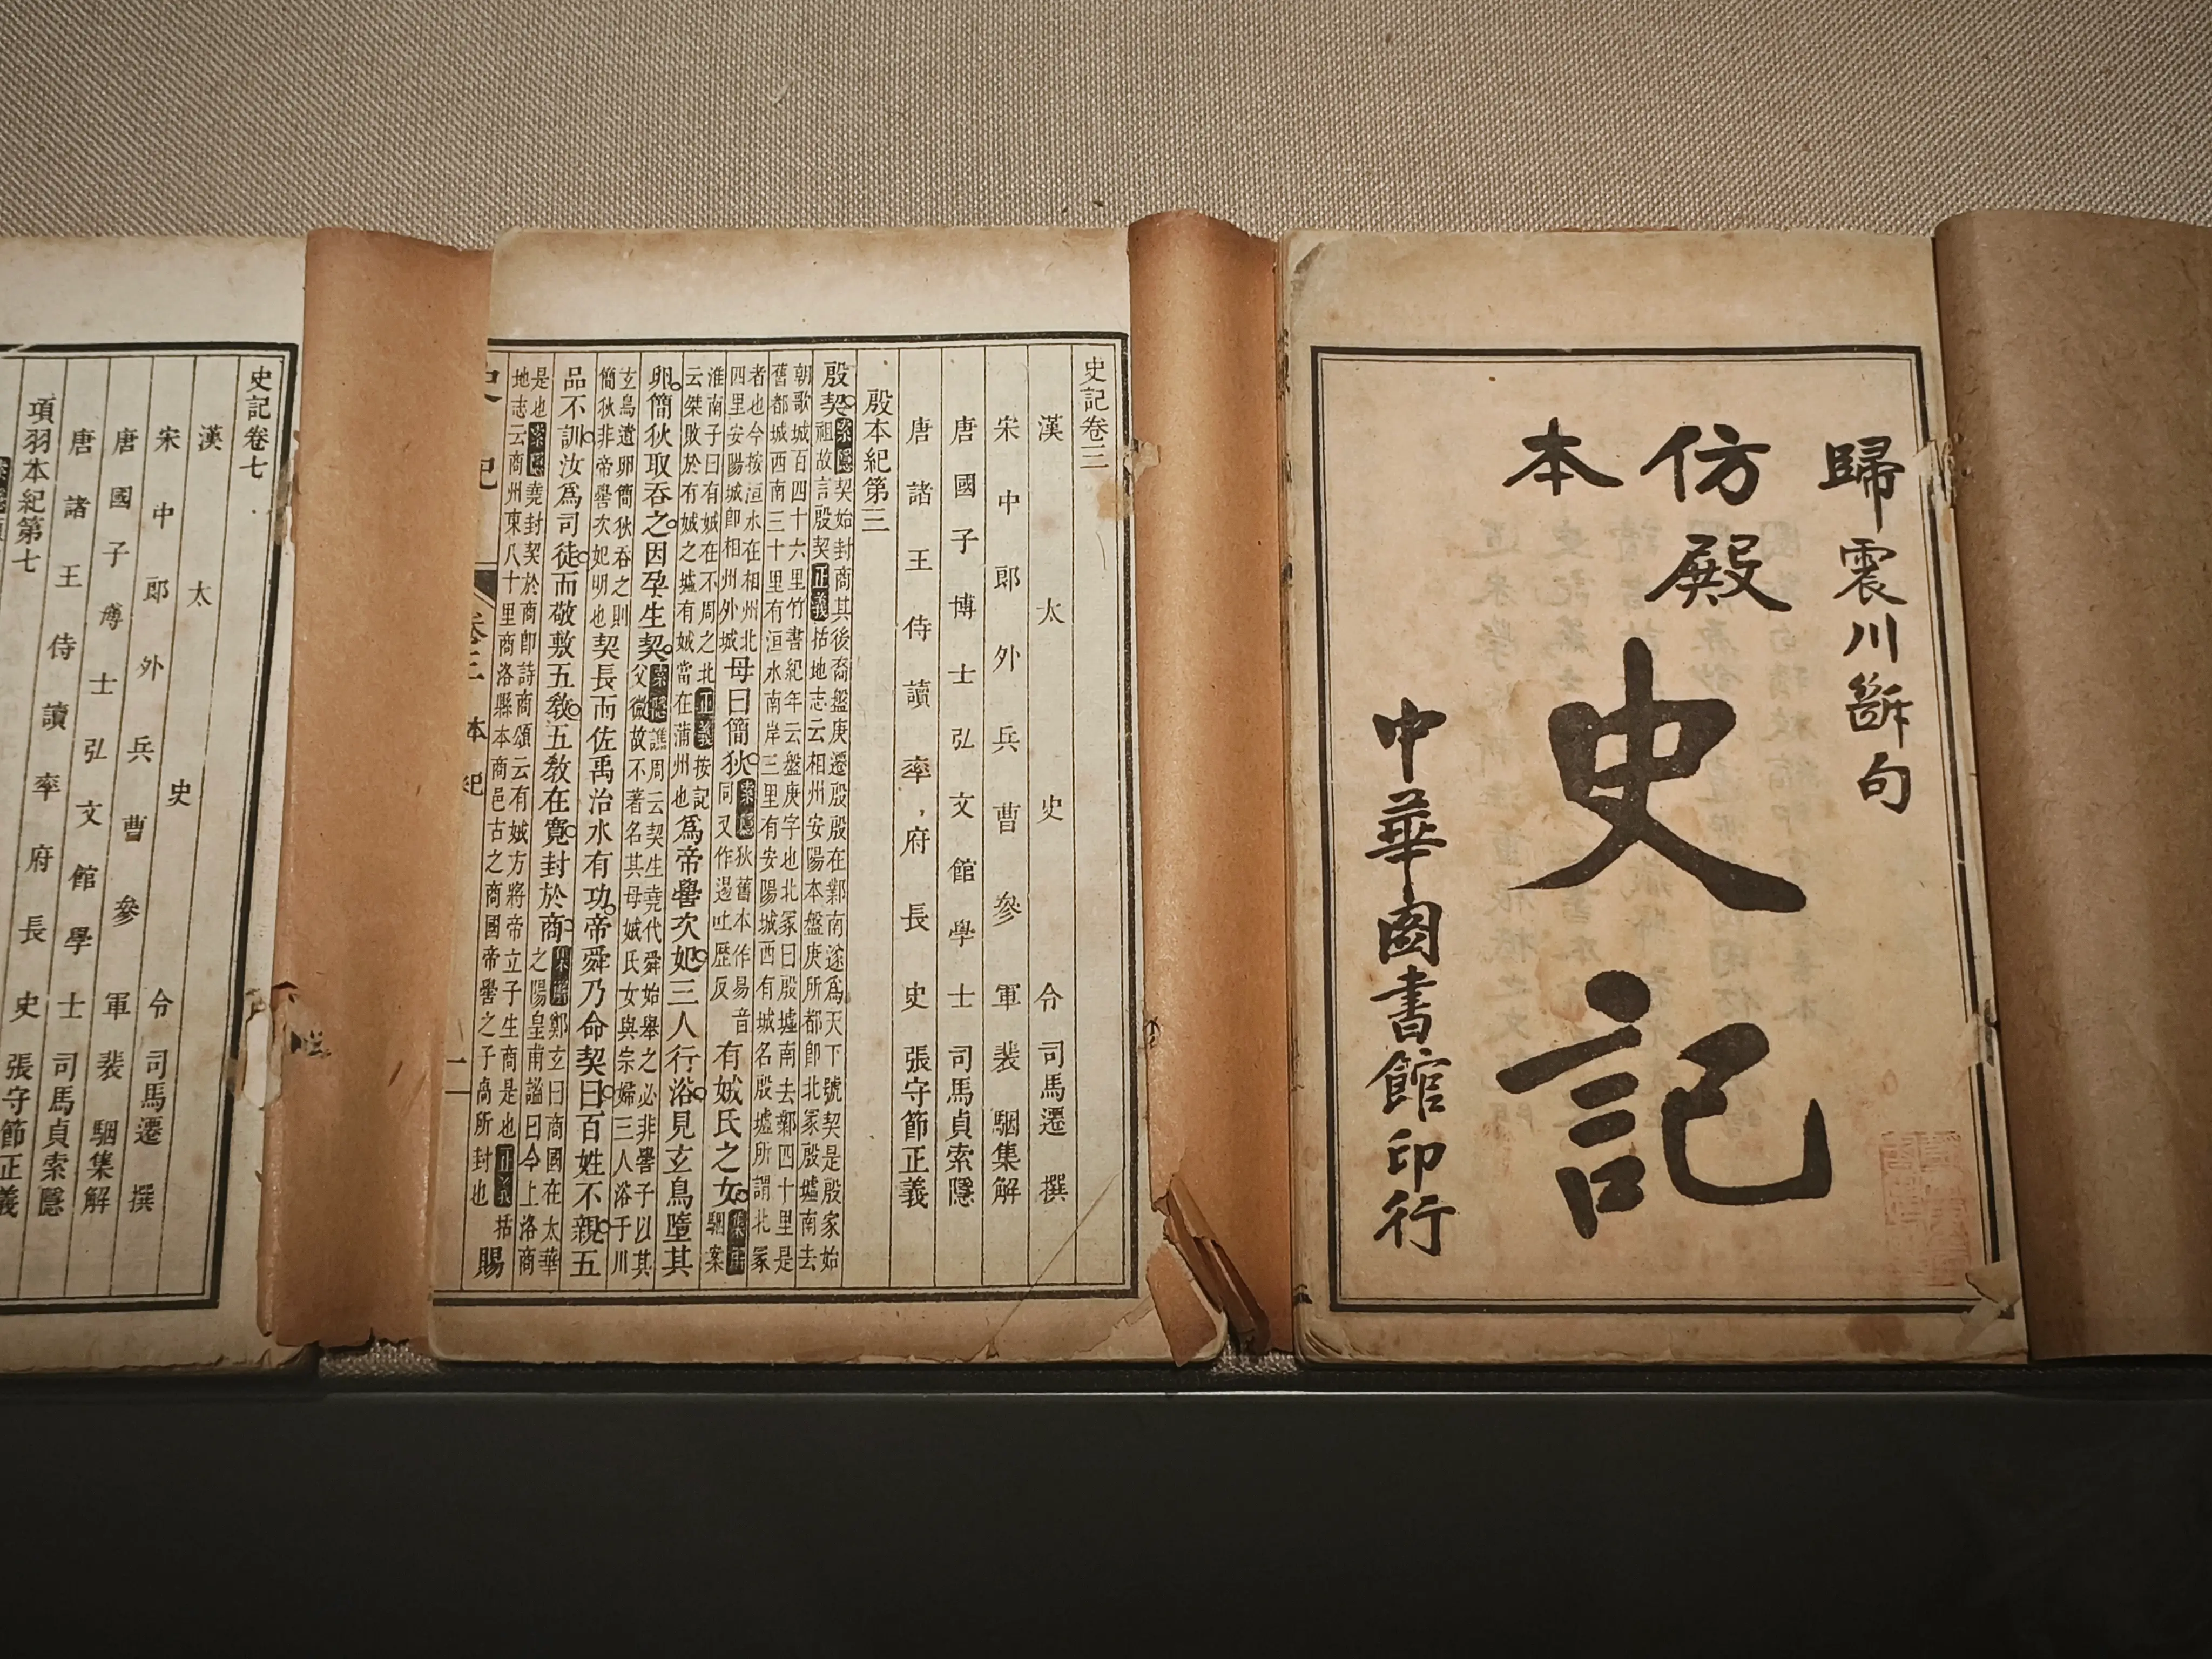 歸震川斷句
仿殿本
史記
中華圖書館印行
史記卷三
漢太史令司馬遷撰
宋中郎外兵曹參軍裴駰集解
唐國子博士弘文館學士司馬貞索隱
唐諸王侍讀率府長史張守節正義
殷本紀第三
殷契。索隱契始封商其後裔盤庚遷殷殷在鄴南遂爲天下號契是殷家始祖故言殷契正義括地志云相州安陽本盤庚所都卽北冢殷墟南去
朝歌城百四十六里竹書紀年云盤庚字也北冢曰殷墟南去鄴四十里是舊都城西南三十里有洹水南岸三里有安陽城西有城名殷墟所謂北冢
者也今按洹水在相州北四里安陽城卽相州外城母曰簡狄。索隱狄舊本作易易音同又作逷吐歷反有娀氏之女。集解駰案
淮南子曰有娀在不周之北正義按記云桀敗於有娀之墟有娀當在蒲州也爲帝嚳次妃。三人行浴。見玄鳥墮其
卵。簡狄取吞之。因孕生契。索隱譙周云契生堯代舜始舉之必非嚳子以其父微故不著名其母娀氏女與宗婦三人浴于川
玄鳥遺卵簡狄吞之則簡狄非帝嚳次妃明也契長而佐禹治水有功。帝舜乃命契曰。百姓不親。五
品不訓。汝爲司徒。而敬敷五敎。五敎在寬。封於商。集解鄭玄曰商國在太華之陽皇甫謐曰今上洛商
是也索隱堯封契於商卽詩商頌云有娀方將帝立子生商是也正義括地志云商州東八十里商洛縣本商邑古之商國帝嚳之子卨所封也賜
史記 卷三 本紀 一
史記卷七
漢太史令司馬遷撰
宋中郎外兵曹參軍裴駰集解
唐國子博士弘文館學士司馬貞索隱
唐諸王侍讀率府長史張守節正義
項羽本紀第七